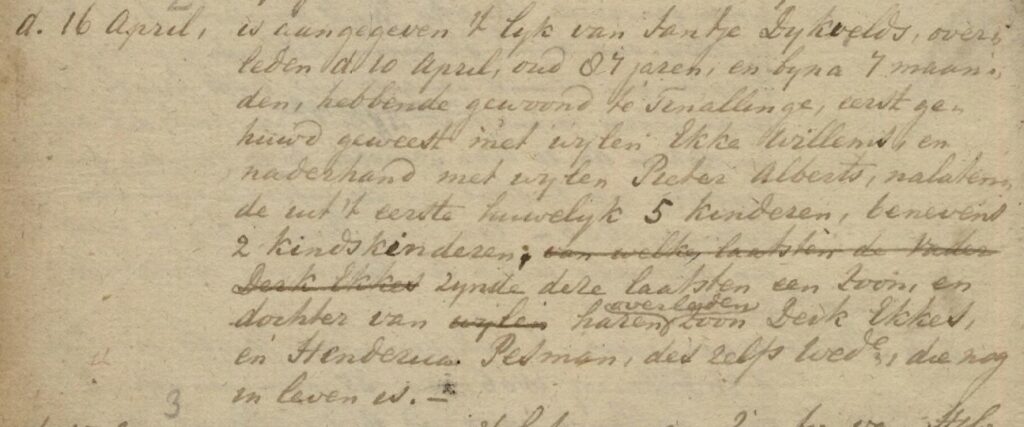 d. 16 April, is aangegeven 't lyk van Jantje Dykvelds, over-
leden d 10 April, oud 87 jaren, en byna 7 maan-
den, hebbende gewoond te Tinallinge, eerst ge-
huwd geweest met wylen Ekke Willems, en
naderhand met wylen Pieter Alberts, nalaten-
de uit 't eerste huwelyk 5 kinderen, benevens
2 kindskinderen, van welke laatsten de Vader
Derk Ekkes zynde deze laatsten een zoon, en
overleden
dochter van wylen haren zoon Derk Ekkes,
en Henderica Pesman, des zelfs wede, die nog
in leven is. –
3